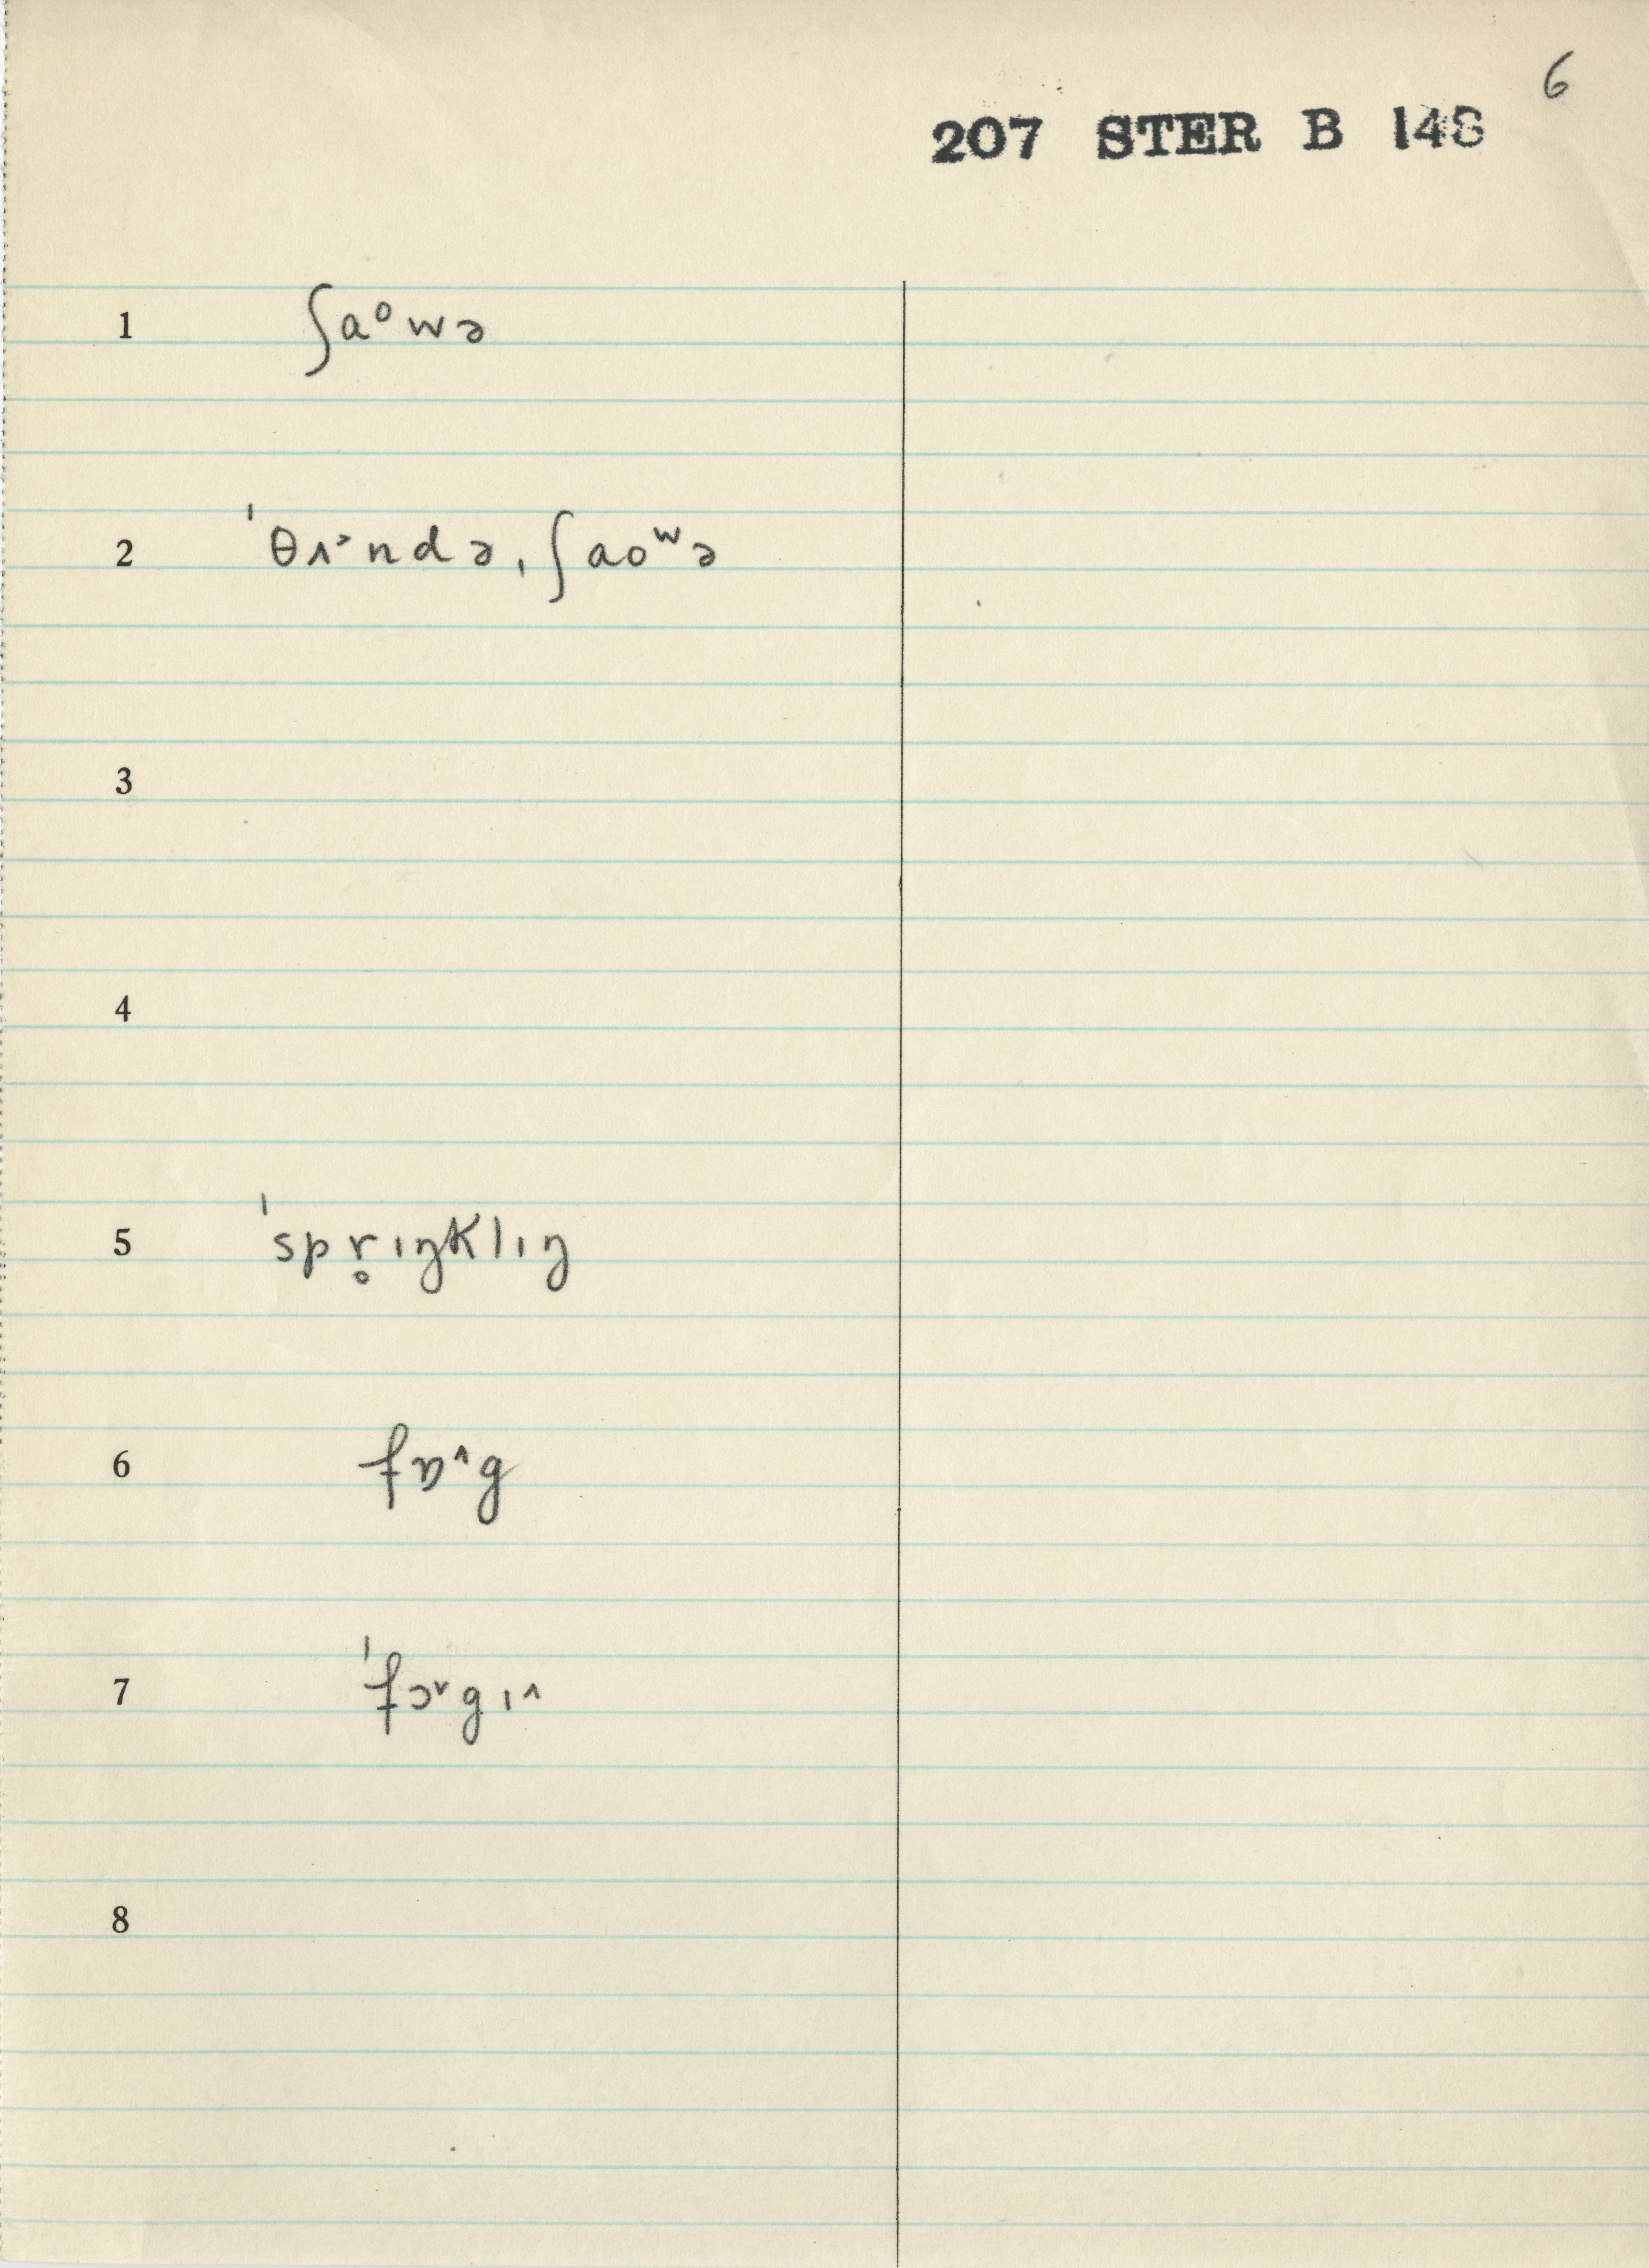 6
207 STER B 148
1 ʃaᵒwə
2 ˈθʌ˃ndə ˌʃaoʷə
3
4
5 ˈspr̥ɪŋklɪŋ
6 fɒ˄g
7 ˈfɔ˅gɪ˄
8